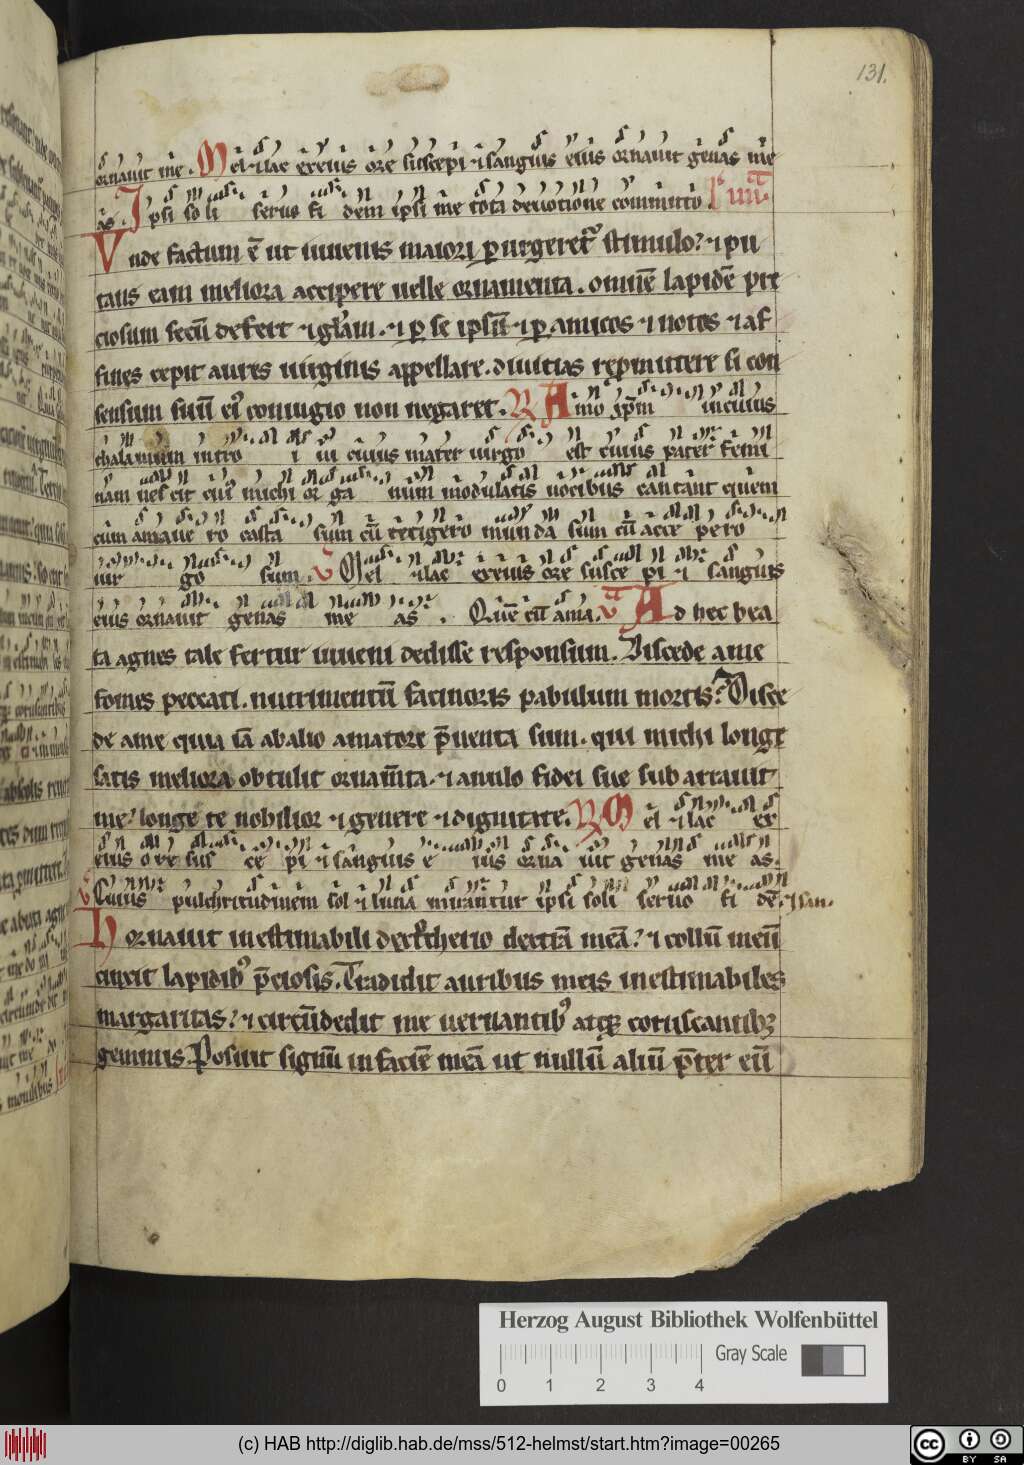 131.
ornauit me. Mel ⁊ lac ex eius ore suscepi ⁊ sanguis eius ornauit genas me
as. Ipsi soli seruo fidem ipsi me tota deuotione committo
Vnde factum ē ut iuuenis maiori purgeret stimulo? ⁊ pu
tans eam meliora accipere uelle ornamenta. omnē lapidē pre
ciosum secū defert ⁊ gl̄am. ⁊ ꝑ se ipsū ⁊ ꝑ amicos ⁊ notos ⁊ af
fines cepit aures uirginis appellare. diuitias repmittere si con
sensum suū ei coniugio non negaret. R Amo xp̄m in cuius
thalamum introiui cuius mater uirgo est cuius pater femi
nam nescit cuius michi organum modulatis uocibus cantant quem
cum amauero casta sum cū tetigero munda sum cū accepero
uirgo sum. V Mel ⁊ lac ex eius ore suscepi ⁊ sanguis
eius ornauit genas meas. Quē cū ama. V Ad hec bea
ta agnes tale fertur iuueni dedisse responsum. Discede a me
fomes peccati. nutrimentū facinoris pabulum mortis? Disce
de a me quia iā ab alio amatore p̄uenta sum. qui michi longe
satis meliora obtulit ornam̄ta. ⁊ anulo fidei sue subarrauit
me? longe te nobilior ⁊ genere ⁊ dignitate. R Mel ⁊ lac ex
eius ore suscepi ⁊ sanguis eius ornauit genas meas.
V Cuius pulchritudinem sol ⁊ luna mirantur ipsi soli seruo fidē. ⁊ san.
Hornauit inestimabili dextrocherio dextrā meā? ⁊ collū meū
cinxit lapidib' p̄ciosis. Tradidit auribus meis inestimabiles
margaritas? ⁊ circūdedit me uernantib' atq; coruscantib;
gemmis. Posuit signū in faciē meā ut nullū aliū p̄ter eū
Herzog August Bibliothek Wolfenbüttel
Gray Scale
0 1 2 3 4
(c) HAB http://diglib.hab.de/mss/512-helmst/start.htm?image=00265
cc BY SA